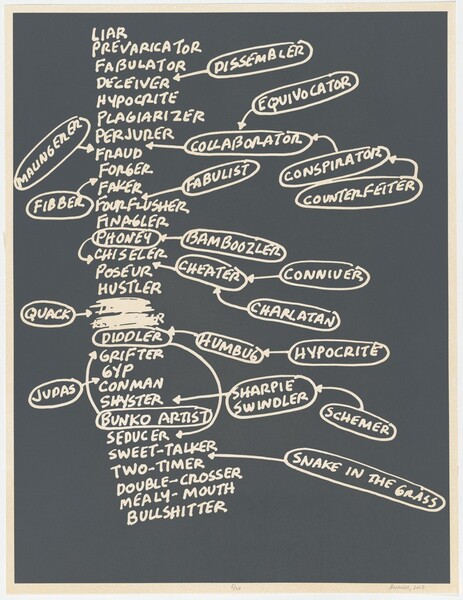 LIAR
PREVARICATOR
FABULATOR
DISSEMBLER
DECEIVER
EQUIVOCATOR
HYPOCRITE
PLAGIARIZER
PERJURER
COLLABORATOR
MALINGERER
FRAUD
CONSPIRATOR
FORGER
FABULIST
COUNTERFEITER
FAKER
FIBBER
FOURFLUSHER
FINAGLER
PHONEY
BAMBOOZLER
CHISELER
POSEUR
CHEATER
CONNIVER
HUSTLER
QUACK
CHARLATAN
DIDDLER
HUMBUG
HYPOCRITE
GRIFTER
GYP
JUDAS
CONMAN
SHARPIE
SHYSTER
SWINDLER
BUNKO ARTIST
SCHEMER
SEDUCER
SWEET-TALKER
TWO-TIMER
SNAKE IN THE GRASS
DOUBLE-CROSSER
MEALY-MOUTH
BULLSHITTER